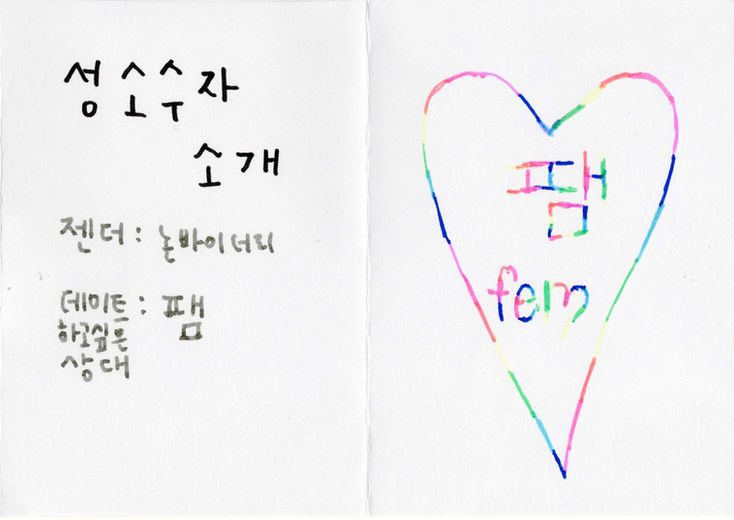 성소수자
소개
젠더: 논바이너리
데이트: 팸
하고싶은
상대
팸
fem